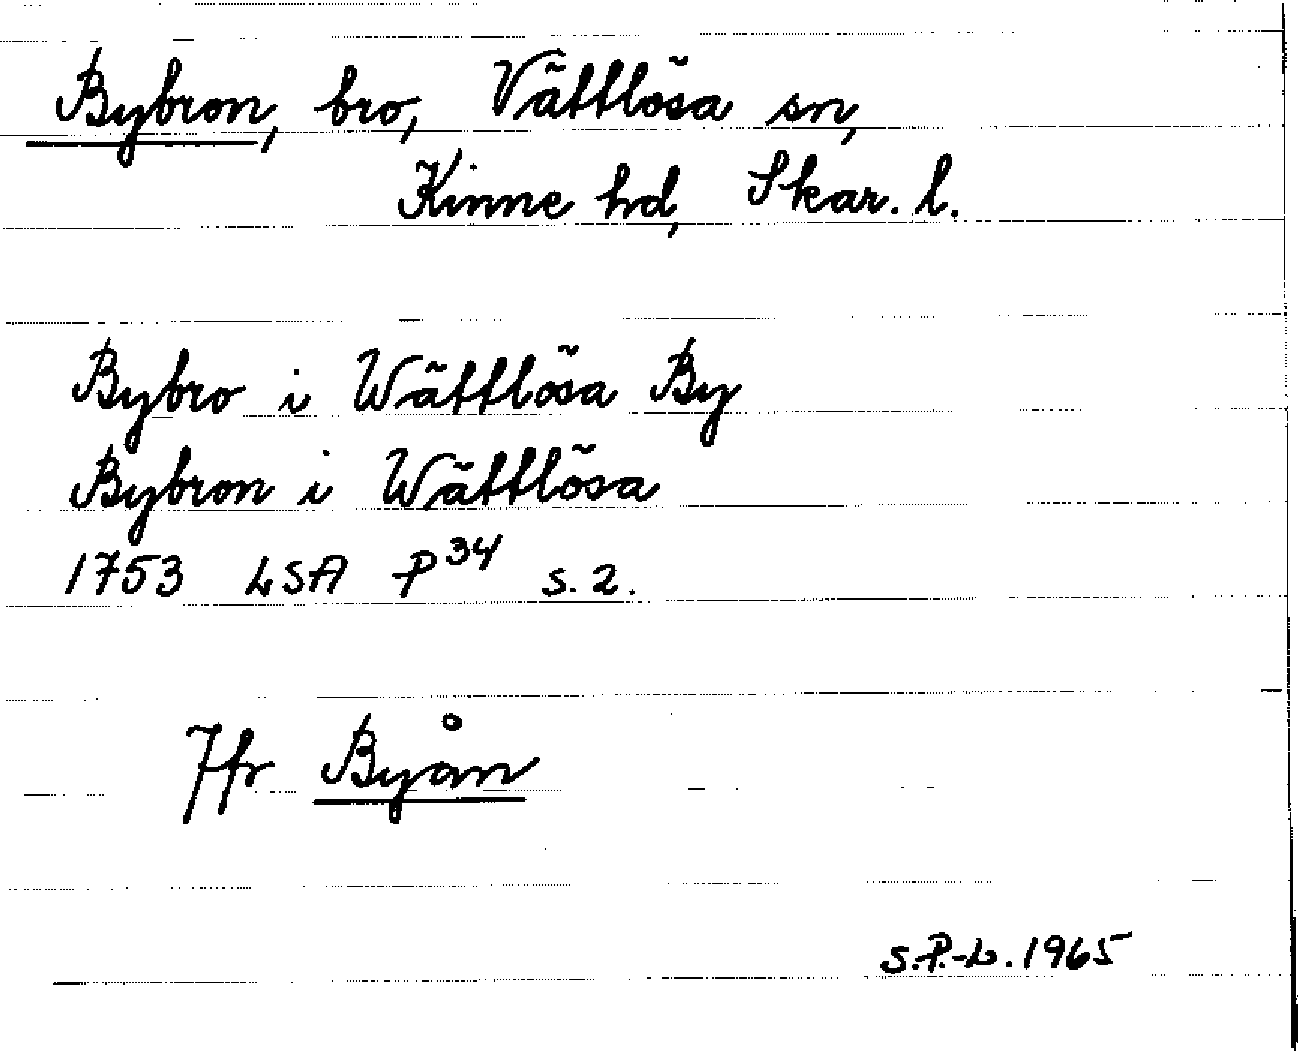 Bybron, bro, Vättlösa sn,
Kinne hd, Skar. l.
Bybro i Wättlösa By
Bybron i Wättlösa
1753 LSA P 34 s. 2.
Jfr Byån
S.P.-L. 1965